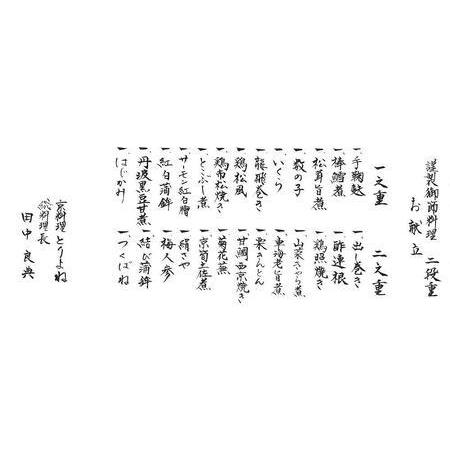 謹製御節料理 二段重
お献立
一之重
一、手鞠麩
一、棒鱈煮
一、松茸旨煮
一、数の子
一、いくら
一、龍飛巻き
一、鶏松風
一、鶏市松焼き
一、とこぶし煮
一、サーモン紅白膾
一、紅白蒲鉾
一、丹波黒豆甘煮
一、はじかみ
二之重
一、出し巻き
一、酢連根
一、鶏照焼き
一、山菜きゃら煮
一、車海老旨煮
一、栗きんとん
一、甘鯛西京焼き
一、菊花蕪
一、京筍土佐煮
一、絹さや
一、梅人参
一、結び蒲鉾
一、つくばね
京料理とりよね
総料理長
田中良典